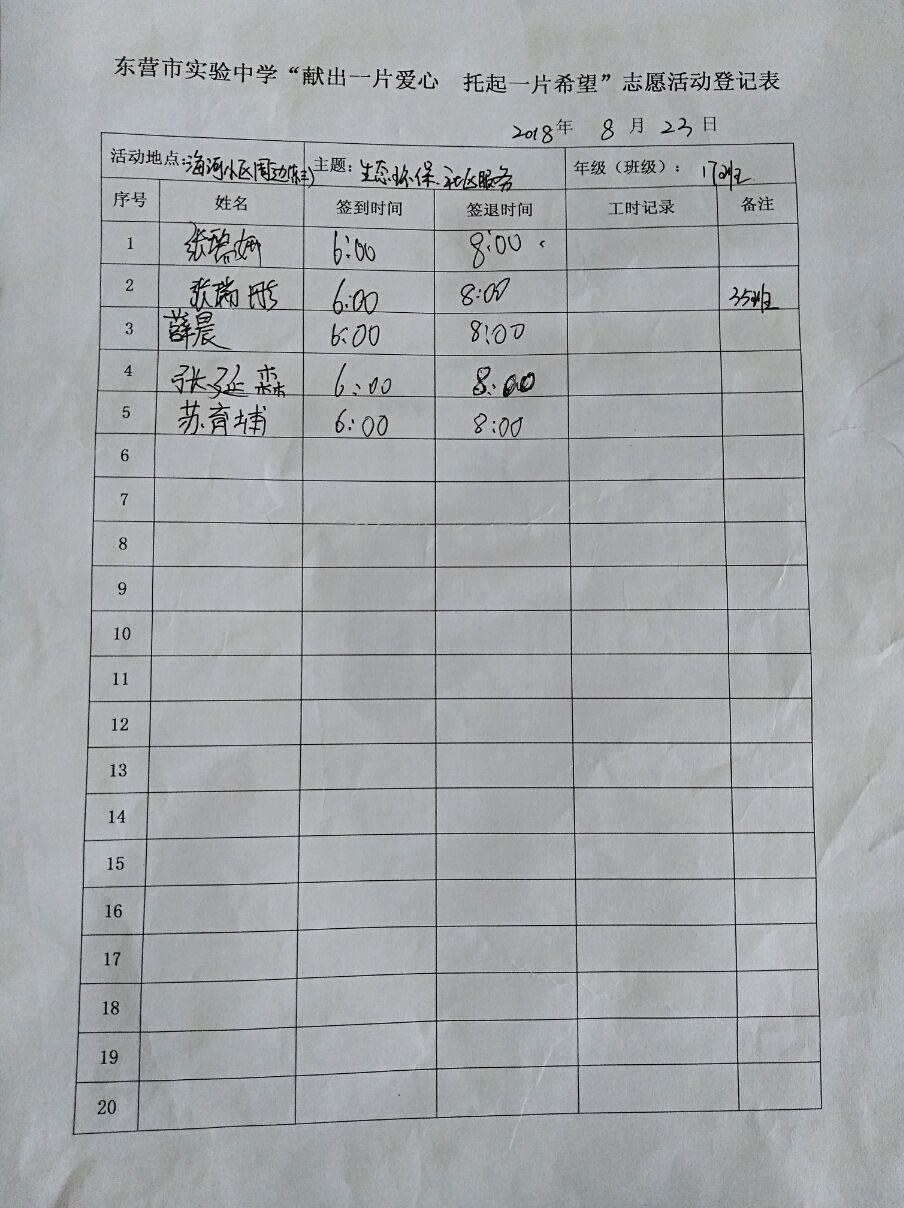 东营市实验中学“献出一片爱心 托起一片希望”志愿活动登记表
2018年 8 月 23 日
活动地点：海河小区周边 主题：生态环保、社区服务 年级（班级）：17班
序号 姓名 签到时间 签退时间 工时记录 备注
1 张碧娜 6:00 8:00
2 张瑞彤 6:00 8:00 35班
3 薛晨 6:00 8:00
4 张延森 6:00 8:00
5 苏育埔 6:00 8:00
6
7
8
9
10
11
12
13
14
15
16
17
18
19
20